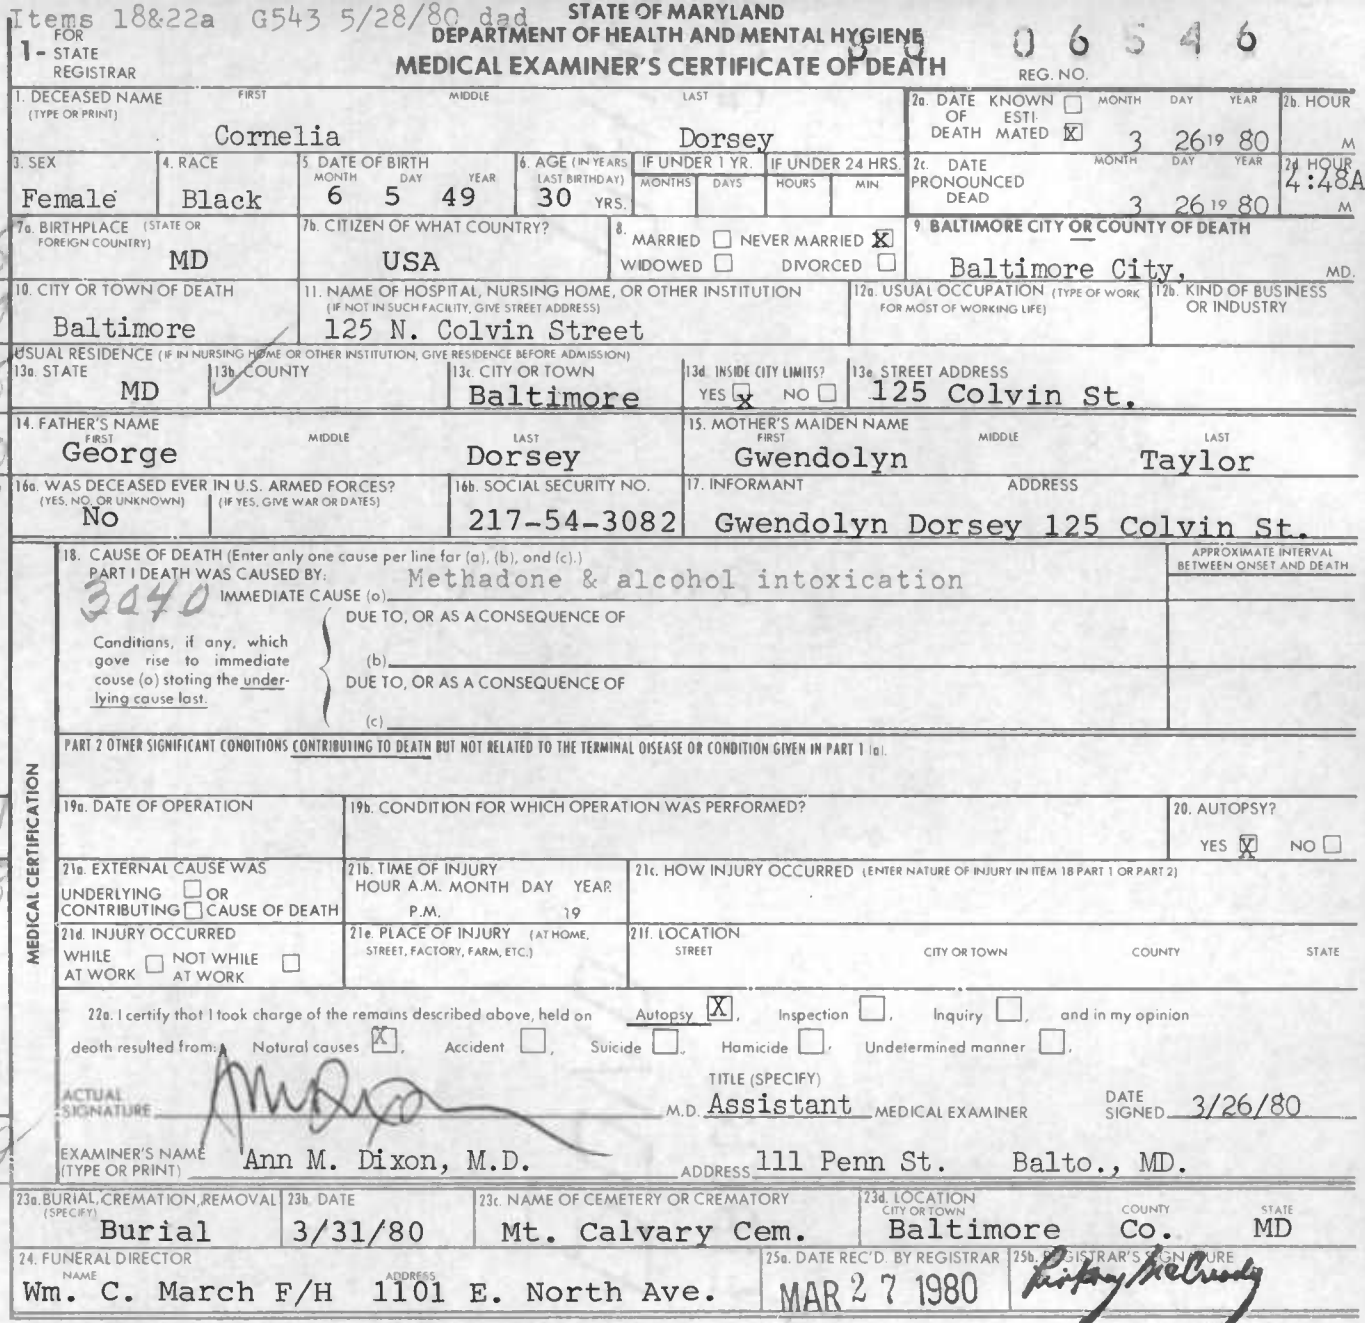 Items 18&22a G543 5/28/80 dad
STATE OF MARYLAND
DEPARTMENT OF HEALTH AND MENTAL HYGIENE
MEDICAL EXAMINER'S CERTIFICATE OF DEATH
FOR
1- STATE
REGISTRAR
06546
REG. NO.
1. DECEASED NAME (TYPE OR PRINT) FIRST MIDDLE LAST
Cornelia Dorsey
2a. DATE OF DEATH KNOWN ☐ ESTIMATED ☒ MONTH DAY YEAR
3 26 19 80
2b. HOUR
M
3. SEX
Female
4. RACE
Black
5. DATE OF BIRTH MONTH DAY YEAR
6 5 49
6. AGE (IN YEARS LAST BIRTHDAY)
30 YRS.
IF UNDER 1 YR. MONTHS DAYS
IF UNDER 24 HRS. HOURS MIN
2c. DATE PRONOUNCED DEAD MONTH DAY YEAR
3 26 19 80
2d HOUR
4:48A M
7a. BIRTHPLACE (STATE OR FOREIGN COUNTRY)
MD
7b. CITIZEN OF WHAT COUNTRY?
USA
8. MARRIED ☐ NEVER MARRIED ☒
WIDOWED ☐ DIVORCED ☐
9 BALTIMORE CITY OR COUNTY OF DEATH
Baltimore City, MD.
10. CITY OR TOWN OF DEATH
Baltimore
11. NAME OF HOSPITAL, NURSING HOME, OR OTHER INSTITUTION
(IF NOT IN SUCH FACILITY, GIVE STREET ADDRESS)
125 N. Colvin Street
12a. USUAL OCCUPATION (TYPE OF WORK FOR MOST OF WORKING LIFE)
12b. KIND OF BUSINESS OR INDUSTRY
USUAL RESIDENCE (IF IN NURSING HOME OR OTHER INSTITUTION, GIVE RESIDENCE BEFORE ADMISSION)
13a. STATE
MD
13b. COUNTY
13c. CITY OR TOWN
Baltimore
13d. INSIDE CITY LIMITS?
YES ☒ NO ☐
13e STREET ADDRESS
125 Colvin St.
14. FATHER'S NAME FIRST MIDDLE LAST
George Dorsey
15. MOTHER'S MAIDEN NAME FIRST MIDDLE LAST
Gwendolyn Taylor
16a. WAS DECEASED EVER IN U.S. ARMED FORCES?
(YES, NO, OR UNKNOWN) (IF YES, GIVE WAR OR DATES)
No
16b. SOCIAL SECURITY NO.
217-54-3082
17. INFORMANT ADDRESS
Gwendolyn Dorsey 125 Colvin St.
18. CAUSE OF DEATH (Enter only one cause per line for (a), (b), and (c).)
PART I DEATH WAS CAUSED BY:
3040 IMMEDIATE CAUSE (a) Methadone & alcohol intoxication
APPROXIMATE INTERVAL BETWEEN ONSET AND DEATH
DUE TO, OR AS A CONSEQUENCE OF
Conditions, if any, which gave rise to immediate cause (a) stating the underlying cause last.
(b)
DUE TO, OR AS A CONSEQUENCE OF
(c)
PART 2 OTHER SIGNIFICANT CONDITIONS CONTRIBUTING TO DEATH BUT NOT RELATED TO THE TERMINAL DISEASE OR CONDITION GIVEN IN PART 1 (a).
MEDICAL CERTIFICATION
19a. DATE OF OPERATION
19b. CONDITION FOR WHICH OPERATION WAS PERFORMED?
20. AUTOPSY?
YES ☒ NO ☐
21a. EXTERNAL CAUSE WAS
UNDERLYING ☐ OR
CONTRIBUTING ☐ CAUSE OF DEATH
21b. TIME OF INJURY
HOUR A.M. MONTH DAY YEAR
P.M. 19
21c. HOW INJURY OCCURRED (ENTER NATURE OF INJURY IN ITEM 18 PART 1 OR PART 2)
21d. INJURY OCCURRED
WHILE AT WORK ☐ NOT WHILE AT WORK ☐
21e. PLACE OF INJURY (AT HOME, STREET, FACTORY, FARM, ETC.)
21f. LOCATION
STREET CITY OR TOWN COUNTY STATE
22a. I certify that I took charge of the remains described above, held on Autopsy ☒, Inspection ☐, Inquiry ☐, and in my opinion
death resulted from: Natural causes ☒, Accident ☐, Suicide ☐, Homicide ☐, Undetermined manner ☐.
ACTUAL SIGNATURE
TITLE (SPECIFY)
M.D. Assistant MEDICAL EXAMINER
DATE SIGNED 3/26/80
EXAMINER'S NAME (TYPE OR PRINT) Ann M. Dixon, M.D.
ADDRESS 111 Penn St. Balto., MD.
23a. BURIAL, CREMATION, REMOVAL (SPECIFY)
Burial
23b. DATE
3/31/80
23c. NAME OF CEMETERY OR CREMATORY
Mt. Calvary Cem.
23d. LOCATION CITY OR TOWN COUNTY STATE
Baltimore Co. MD
24. FUNERAL DIRECTOR
NAME ADDRESS
Wm. C. March F/H 1101 E. North Ave.
25a. DATE REC'D. BY REGISTRAR
MAR 27 1980
25b. REGISTRAR'S SIGNATURE